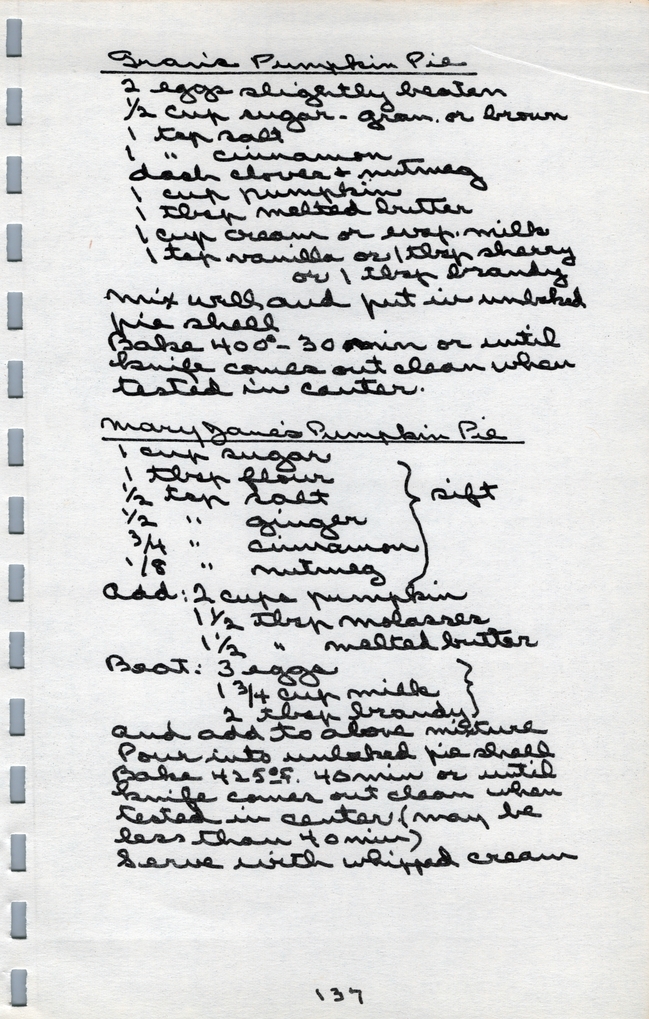 Gran's Pumpkin Pie
2 eggs slightly beaten
1/2 cup sugar - gran. or brown
1 tsp salt
1 " cinnamon
dash cloves + nutmeg
1 cup pumpkin
1 tbsp melted butter
1 cup cream or evap. milk
1 tsp vanilla or 1 tbsp sherry
or 1 tbsp brandy
Mix well and put in unbaked
pie shell
Bake 400° - 30 min or until
knife comes out clean when
tested in center.
Mary Jane's Pumpkin Pie
1 cup sugar
1 tbsp flour
1/2 tsp salt } sift
1/2 " ginger
3/4 " cinnamon
1/8 " nutmeg
Add: 2 cups pumpkin
1 1/2 tbsp molasses
1 1/2 " melted butter
Beat: 3 eggs
1 3/4 cup milk
2 tbsp brandy
and add to above mixture
Pour into unbaked pie shell
Bake 425°F. 40 min or until
knife comes out clean when
tested in center (may be
less than 40 min)
Serve with whipped cream
137